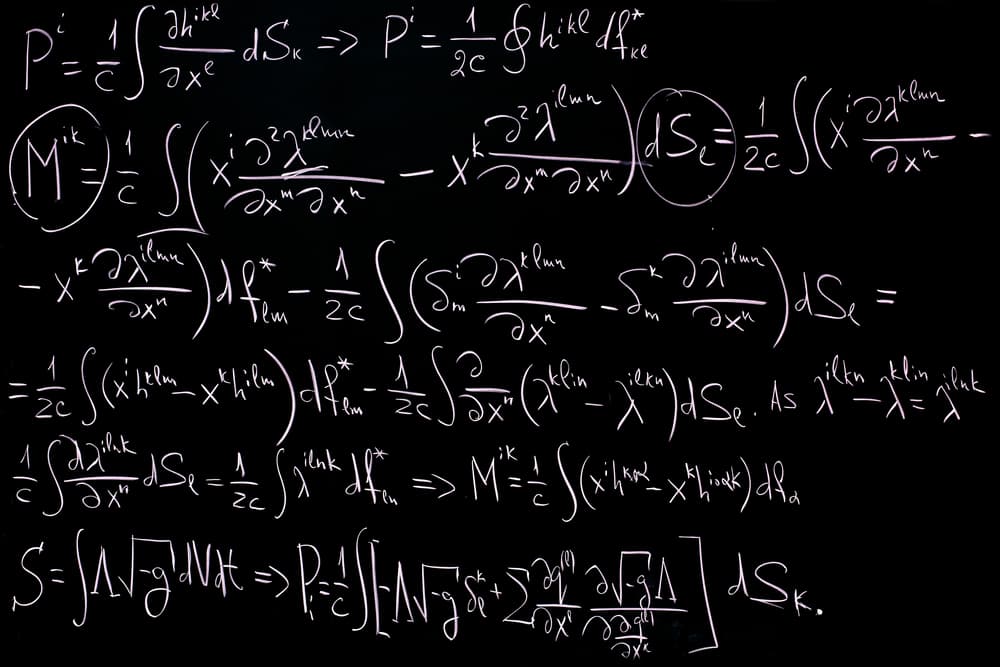 Pⁱ = 1/c ∫ ∂hⁱᵏˡ/∂xˡ dSₖ => Pⁱ = 1/2c ∮ hⁱᵏˡ df*ₖₗ
Mⁱᵏ = 1/c ∫ (xⁱ ∂²λᵏˡᵐⁿ/∂xᵐ∂xⁿ − xᵏ ∂²λⁱˡᵐⁿ/∂xᵐ∂xⁿ) dSₗ = 1/2c ∫ (xⁱ ∂λᵏˡᵐⁿ/∂xⁿ −
− xᵏ ∂λⁱˡᵐⁿ/∂xⁿ) df*ₗₘ − 1/2c ∫ (δⁱₘ ∂λᵏˡᵐⁿ/∂xⁿ − δᵏₘ ∂λⁱˡᵐⁿ/∂xⁿ) dSₗ =
= 1/2c ∫ (xⁱhᵏˡᵐ − xᵏhⁱˡᵐ) df*ₗₘ − 1/2c ∫ ∂/∂xⁿ (λᵏˡⁱⁿ − λⁱˡᵏⁿ) dSₗ. As λⁱˡᵏⁿ − λᵏˡⁱⁿ = λⁱˡⁿᵏ
1/c ∫ ∂λⁱˡⁿᵏ/∂xⁿ dSₗ = 1/2c ∫ λⁱˡⁿᵏ df*ₗₙ => Mⁱᵏ = 1/c ∫ (xⁱhᵏᵒᵅ − xᵏh
S = ∫ Λ√-g dVdt => Pᵢ = 1/c ∫ [−Λ√-g δᵏₗ + Σ ∂q⁽ˡ⁾/∂xⁱ ∂√-gΛ/∂(∂q⁽ˡ⁾/∂xᵏ)] dSₖ.